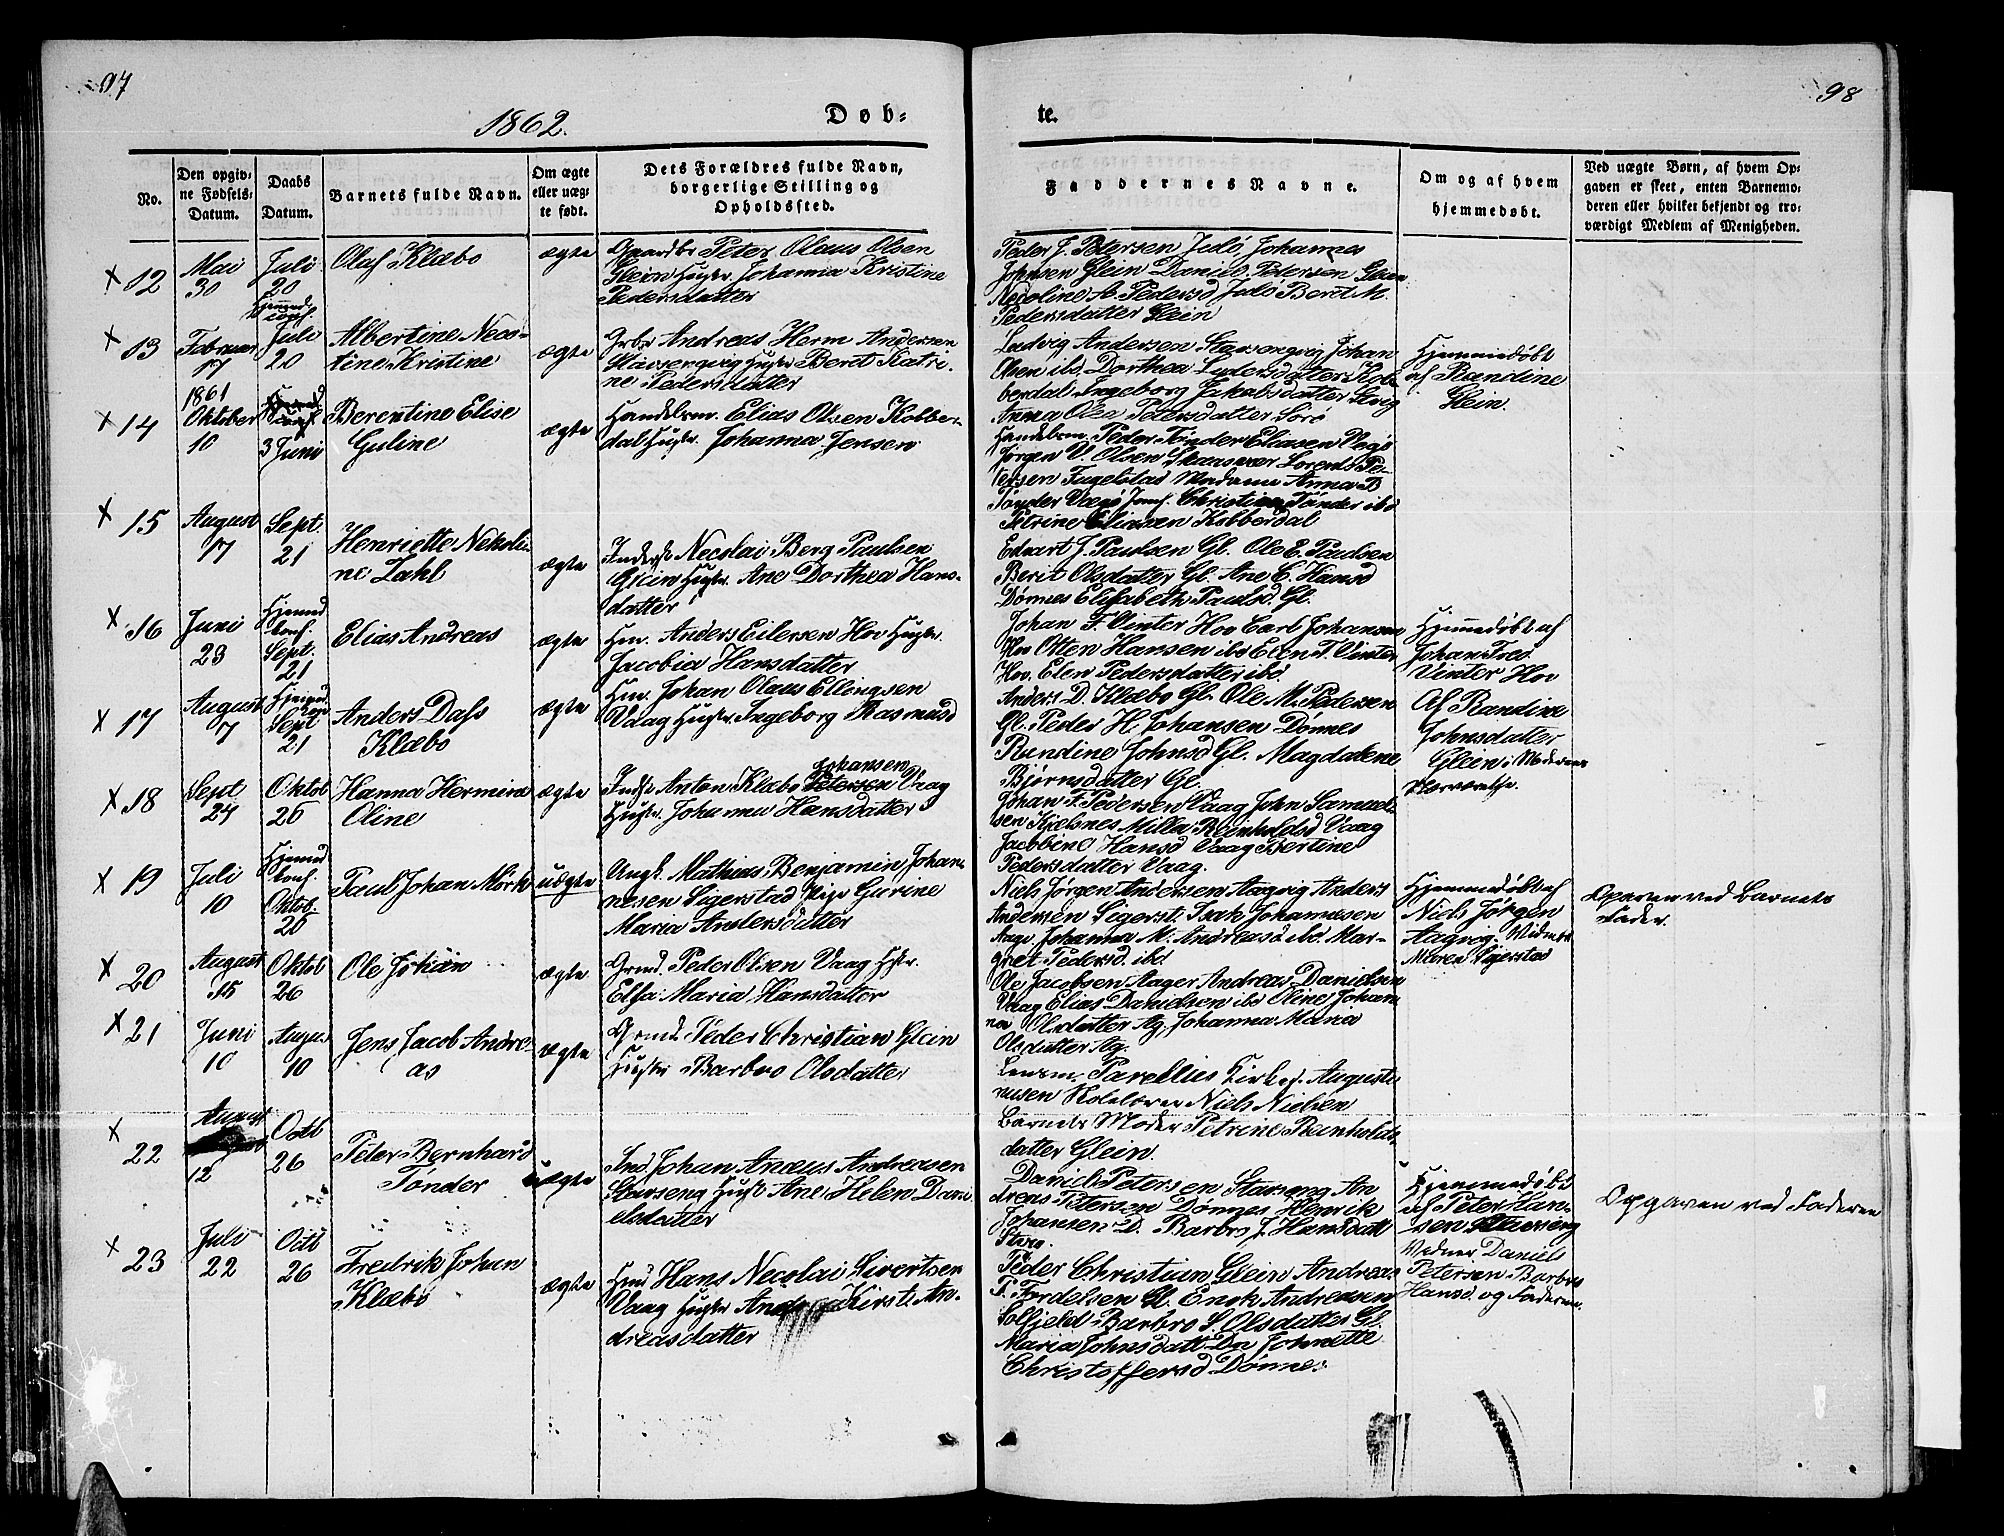 97
98
1862.
Døb-
te.
No.
Den opgiv-
ne Fødsels-
Datum.
Daabs
Datum.
Barnets fulde Navn.
Om ægte
eller uæg-
te født.
Dets Forældres fulde Navn,
borgerlige Stilling og
Opholdssted.
Faddernes Navne.
Om og af hvem
hjemmedøbt.
Ved uægte Børn, af hvem Op-
gaven er skeet, enten Barnemo-
deren eller hvilket bekjendt og tro-
værdigt Medlem af Menigheden.
× 12
Mai
30
Juli
20
Olaf Klæbo
ægte
Gaardbr Peter Olaus Olsen
Glein Hustr. Johanna Kristine
Pedersdatter
Peder J. Petersen Johannes
Johnsen Glein Daniel Petersen Glein
Necoline A. Pedersd Beret M.
Pedersdatter Glein
× 13
Februar
17
Hjemmed
conf.
Juli
20
Albertine Neco-
line Kristine
ægte
Grbr Andreas Herm Andersen
Stavsengvig Hustr Beret Katri-
ne Pedersdatter
Ludvig Andersen Stavsengvig Johan
Olsen ibd Dorthea Lydersdatter Kob-
berdal Ingeborg Jakobsdatter Stvig
Anna Olea Petersdatter Sørø
Hjemmedøbt
af Randine
Glein.
× 14
1861
Oktober
10
3 Juni
Berentine Elise
Guline
ægte
Handelsm. Elias Olsen Kobber-
dal Hustr. Johanna Jensen
Handelsm. Peder Tønder Eliasen Vegø
Jørgen V. Olsen Skaasvær Lorents Pe-
tersen Fugelstad Madame Anna B
Tønder Vægø Jomf. Christine Tønder ibd
Petrine Eliasen Kobberdal
× 15
August
17
Sept.
21
Henriette Nekoli-
ne Zahl
ægte
Inderst Necolai Berg Paulsen
Glein Hustr. Ane Dorthea Hans-
datter
Edvart J. Paulsen Gl. Ole E. Paulsen
Berit Olsdatter Gl. Ane C. Hansd
Dønnes Elisabeth Paulsd. Gl.
× 16
Juni
23
Hjemmd
conf.
Sept.
21
Elias Andreas
ægte
Hm. Anders Eilersen Hov Hustr.
Jacobia Hansdatter
Johan F. Vinter Hov Carl Johansen
Hov Otten Hansen ibd Elen T. Vinter
Hov. Elen Pedersdatter ibd.
Hjemmedøbt af
Johan Fred
Vinter Hov
× 17
August
17
Hjemmd
conf
Sept
21
Anders Dass
Klæbo
ægte
Hm. Johan Olaus Ellingsen
Vaag Hustr Ingeborg Rasmusd
Anders D. Klæbo Gl. Ole M. Pedersen
Gl. Peder H. Johansen Dønnes
Randine Johnsd Gl. Magdalene
Bjørnsdatter Gl.
Af Randine
Johnsdatter
Glein i Moderens
Nærværelse.
× 18
Sept
24
Oktob
26
Hanna Hermine
Oline
ægte
Johansen
Indst Anton Klæbo Petersen Vaag
Hustr. Johanna Hansdatter
Johan F. Pedersen Vaag John Samuel-
sen Kjelsnes Milla Reinholdsd Vaag
Jacobine Hansd Vaag Bertine
Pedersdatter Vaag.
× 19
Juli
10
Hjemmd
conf.
Oktob.
26
Paul Johan Mørk
uægte
Ungk. Mathias Benjamin Johan-
nesen Sigerstad Pige Gurine
Maria Andersdatter
Niels Jørgen Andersen Aagvig Anders
Andersen Sigerst. Isak Johannesen
Aagv. Johanna M. Andreasd ibd. Mar-
gret Pedersd. ibd
Hjemmedøbt af
Niels Jørgen
Aagvig. Vidner
Maren Sigerstad
Opgaven ved Barnets
Fader.
× 20
August
15
Oktob
26
Ole Johan
ægte
Grmd. Peder Olsen Vaag Hstr.
Elsa Maria Hansdatter
Ole Jacobsen Aager Andreas Danielsen
Vaag Elias Danielsen ibd Oline Johan-
na Olsdatter Ag. Johanna Maria
Olsdatter Ag.
× 21
Juni
10
Augu.
10
Jens Jacob Andre-
as
ægte
Grmd. Peder Christian Glein
Hustr Barbro Olsdatter
Lensm. Parelius Kirkes. Augusti-
nusen Skolelærer Niels Nielsen
Barnets Moder Petrine Reinholds-
datter Glein.
× 22
August
12
Octb
26
Peter Bernhard
Tønder
uægte
Ind Johan Anæus Andreasen
Stavseng Hust Ane Helen Dani-
elsdatter
Daniel Petersen Stavseng An-
dreas Petersen Dønnes Henrik
Johansen D. Barbro J. Hansdatt
Stavs.
Hjemmedøbt
af Peter Han-
sen Stavseng
Vidner Daniel
Petersen Barbro
Hansd. og Faderen.
Opgaven ved Faderen
× 23
Juli
22
Octb
26
Fredrik Johan
Klæbo
ægte
Hmd Hans Necolai Sivertsen
Vaag Hustr Kirst. An-
dreasdatter
Peder Christian Glein Andreas
T. Fordelsen Gl. Enok Andreasen
Solfjeld Barbro S. Olsdatter Gl.
Maria Johnsdatt Do Johnette
Christoffersd. Dønnes.